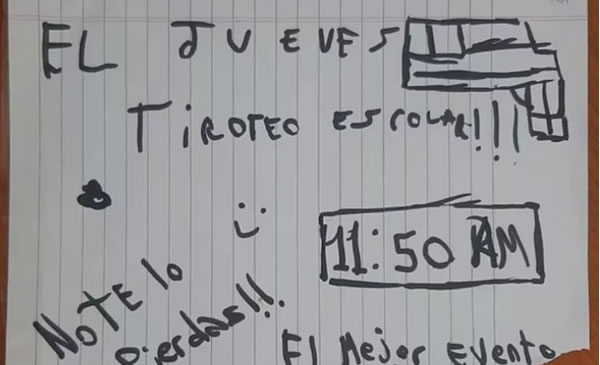 EL JUEVES
TiROTEO ESCOLAR!!!
11:50 AM
NOTE lo
pierdas!!!
El Mejor Evento